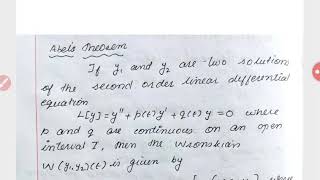 Abel's Theorem
If y₁ and y₂ are two solutions
of the second order linear differential
equation
L[y] = y'' + p(t) y' + q(t) y = 0 where
p and q are continuous on an open
interval I, then the Wronskian
W(y₁, y₂)(t) is given by
where